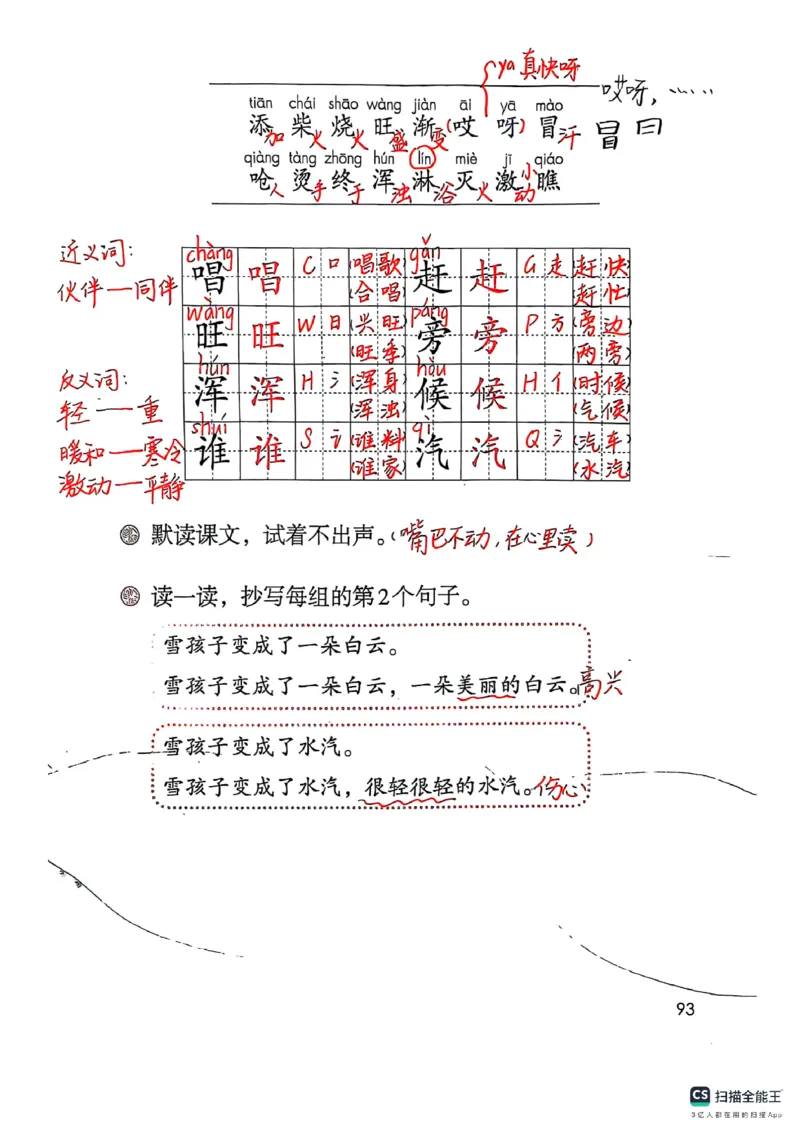 ya 真快呀
哎呀，……
tiān chái shāo wàng jiàn āi yā mào
添 柴 烧 旺 渐 (哎 呀) 冒
加 火 火 盛 变 汗 冒 曰
qiàng tàng zhōng hún lín miè jī qiáo
呛 烫 终 浑 淋 灭 激 瞧
人 手 于 浊 浴 火 动 小
近义词：
伙伴—同伴
反义词：
轻—重
暖和—寒冷
激动—平静
chàng gǎn
唱 唱 C 口 (唱歌) 赶 赶 G 走 (赶快)
(合唱) (赶忙)
wàng páng
旺 旺 W 日 (兴旺) 旁 旁 P 方 (旁边)
(旺季) (两旁)
hún hòu
浑 浑 H 氵 (浑身) 候 候 H 亻 (时候)
(浑浊) (气候)
shuí qì
谁 谁 S 讠 (谁料) 汽 汽 Q 氵 (汽车)
(谁家) (水汽)
默读课文，试着不出声。(嘴巴不动，在心里读)
读一读，抄写每组的第2个句子。
雪孩子变成了一朵白云。
雪孩子变成了一朵白云，一朵美丽的白云。高兴
雪孩子变成了水汽。
雪孩子变成了水汽，很轻很轻的水汽。伤心
93
CS 扫描全能王
3亿人都在用的扫描App